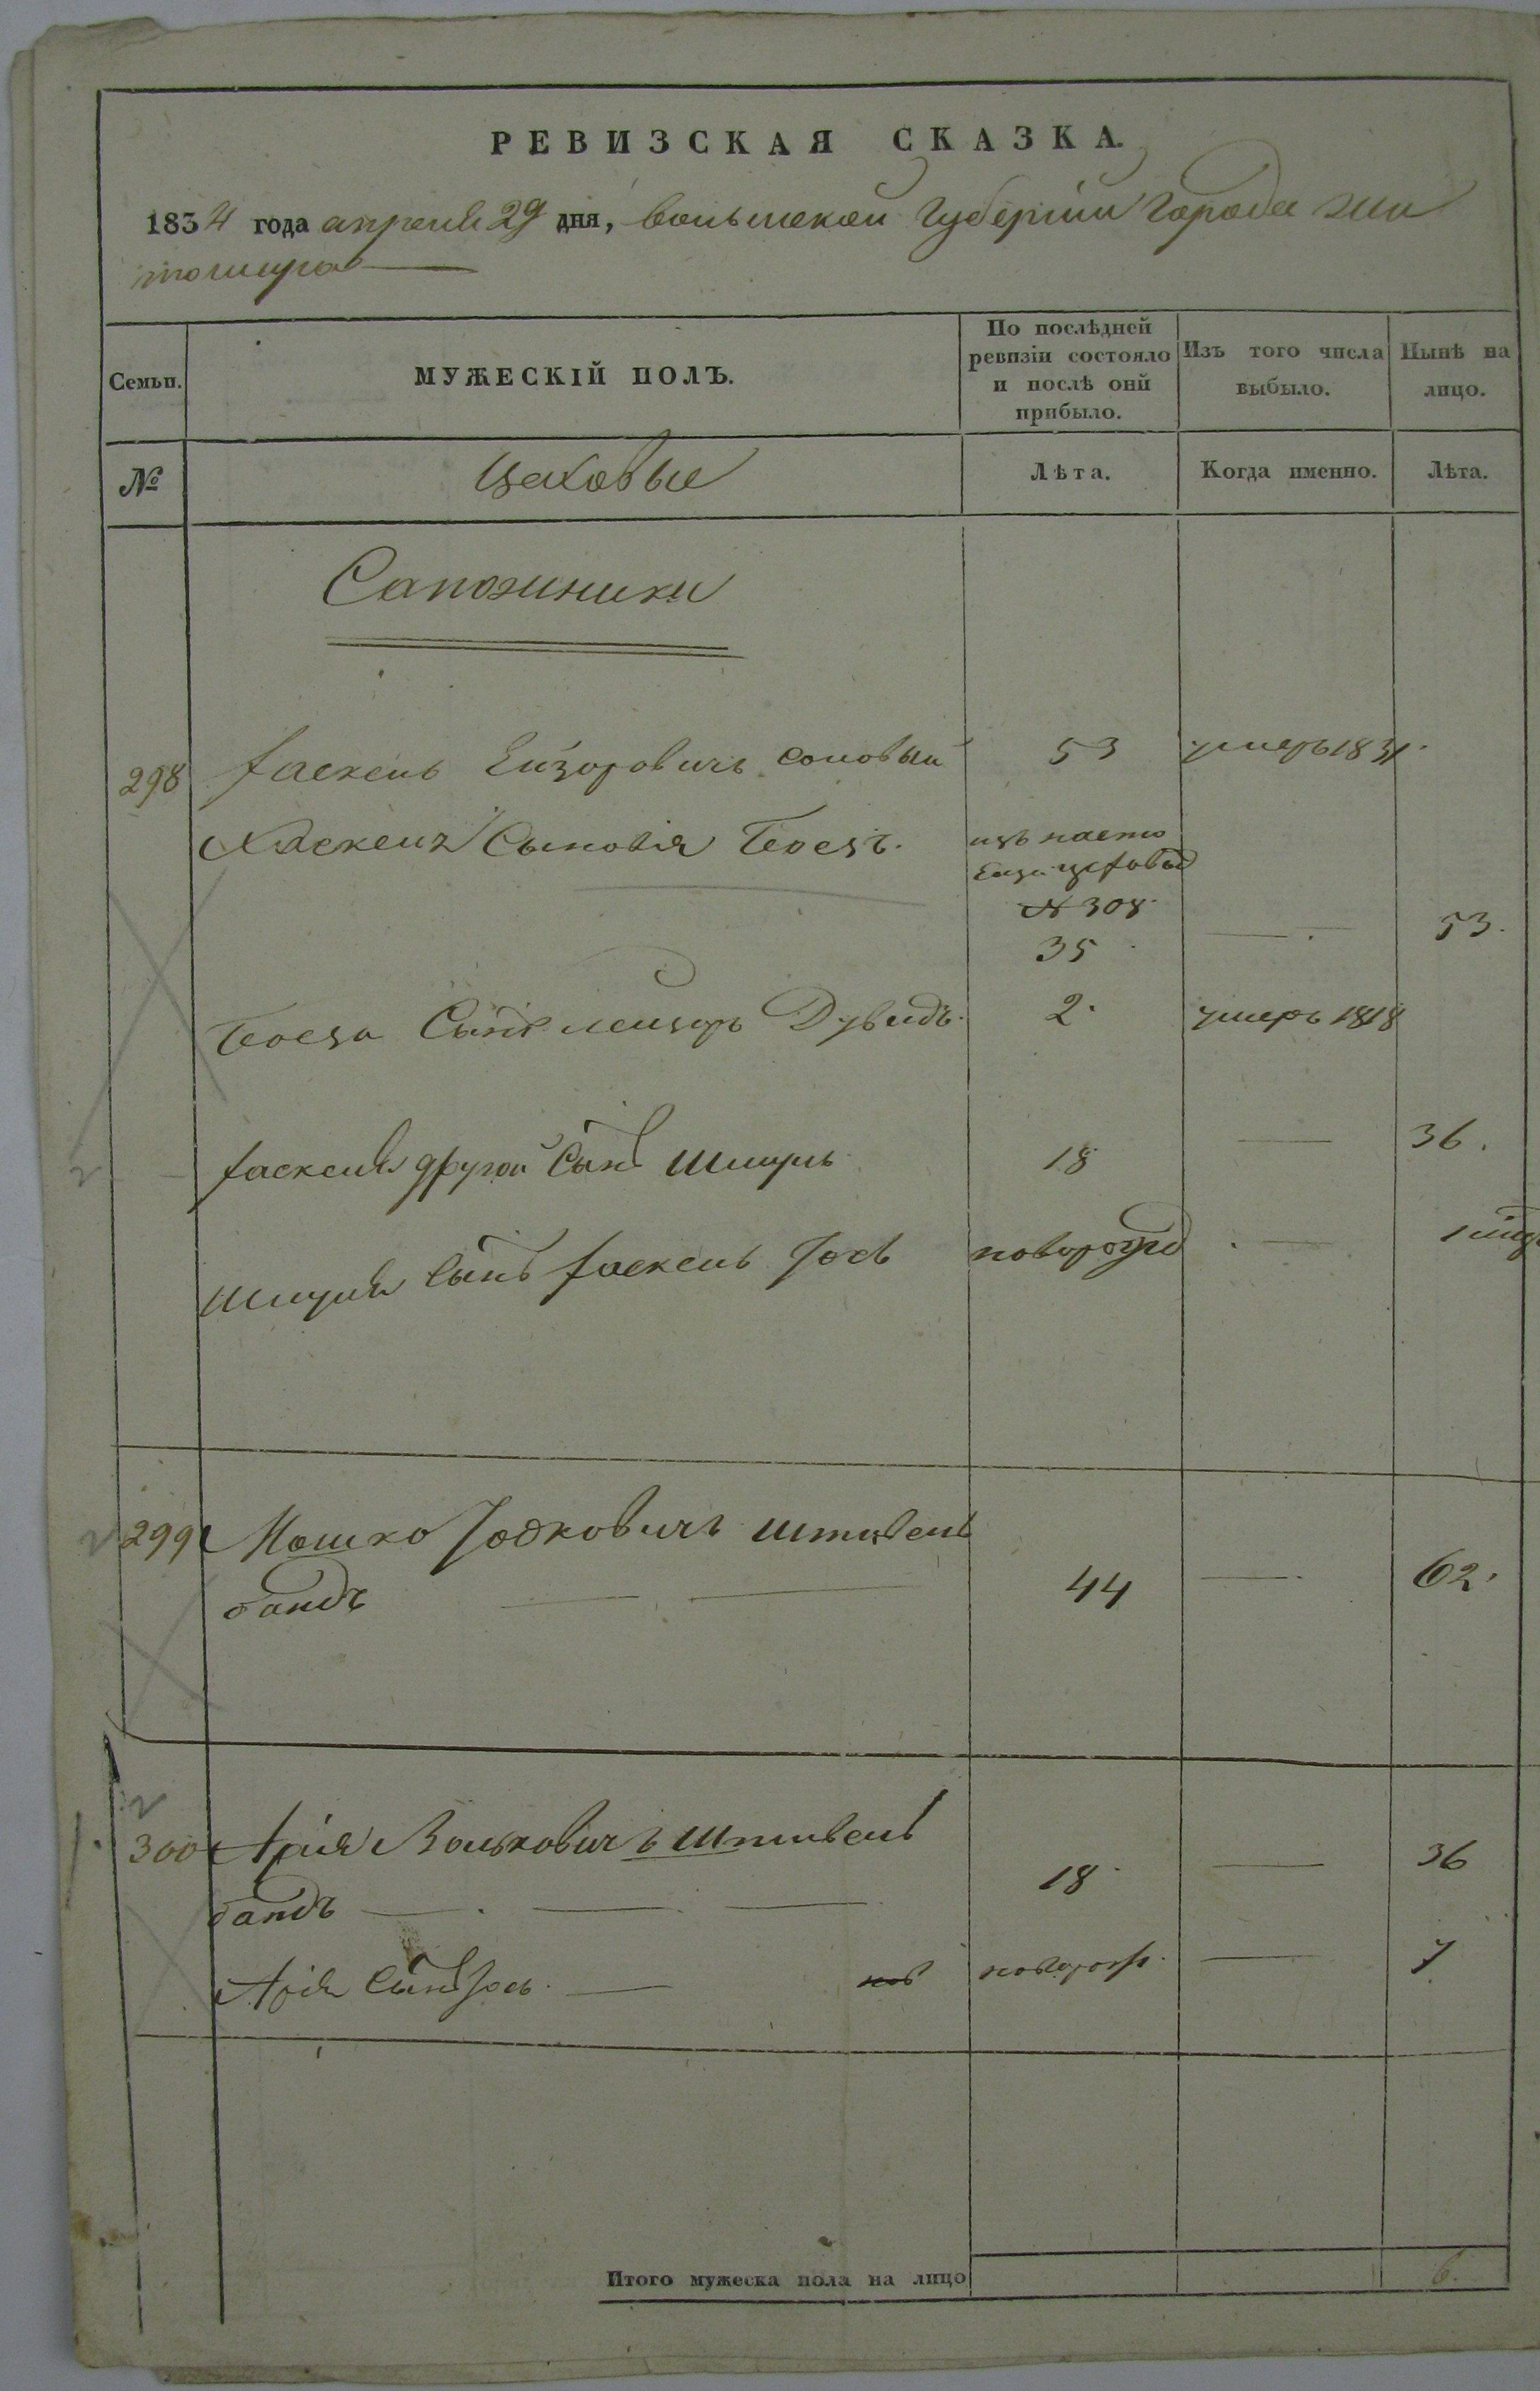 РЕВИЗСКАЯ СКАЗКА.
1834 года апреля 29 дня, волынской губернии города жи
томира
Семьи.
МУЖЕСКІЙ ПОЛЪ.
По послѣдней
ревизіи состояло
и послѣ онй
прибыло.
Изъ того числа
выбыло.
Нынѣ на
лицо.
№
Цеховые
Лѣта.
Когда именно.
Лѣта.
Сапожники
298 Хаскель Еизоровичъ 53 умеръ 1831
Хаскеля Сыновія
№ 308
35 53.
Сынъ Дувидъ. 2. умеръ 1818
Хаскеля другой Сынъ Шмуль 18 36.
Шмуля Сынъ Хаскель Іось новорож
299 Мошко Іоскович Штивель
бандъ 44 62.
300 Арія Вольковичъ Штивель
бандъ 18 36
Арія Сынъ Іось нов новорож. 7
Итого мужеска пола на лицо 6.